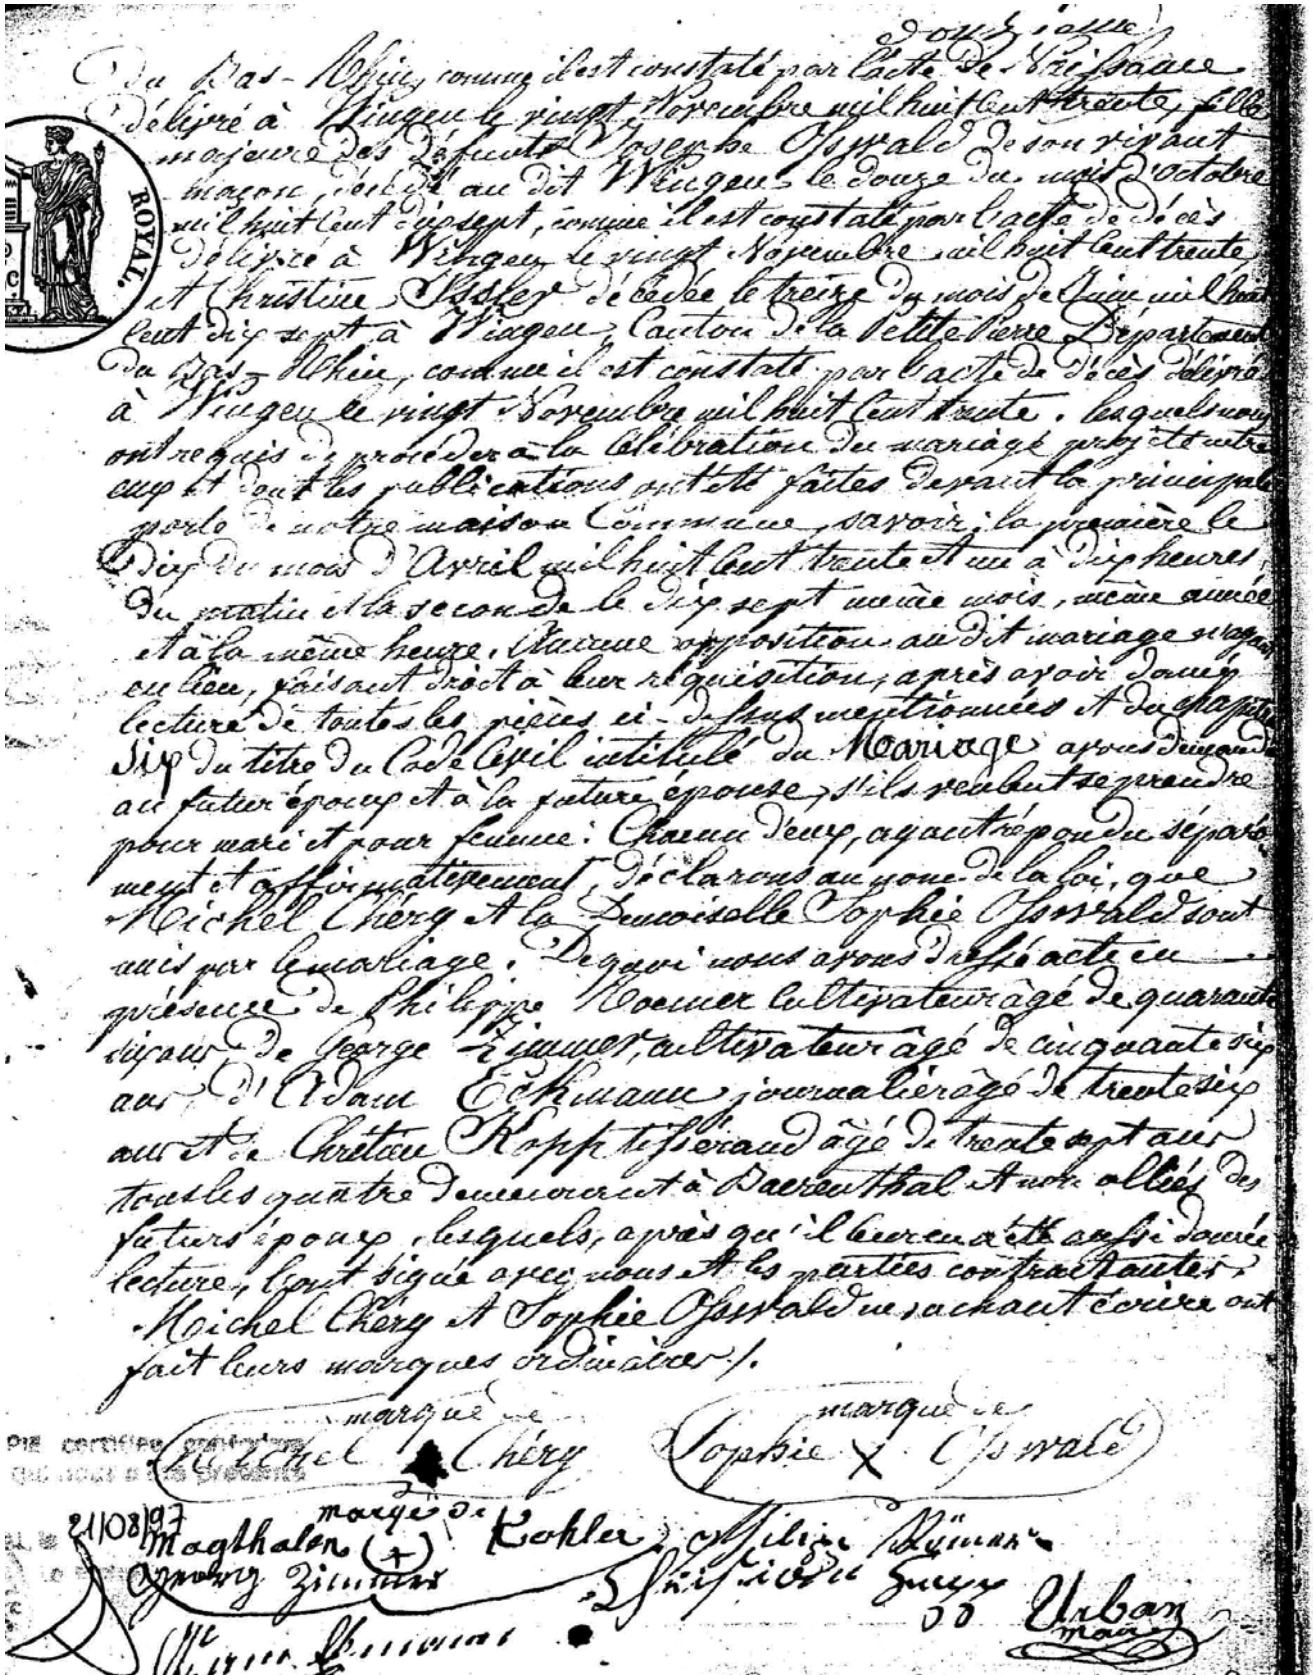 douzième
du Bas-Rhin, comme il est constaté par l'acte de Naissance
délivré à Wingen le vingt Novembre mil huit cent trente, fille
majeure des défunts Joseph Osswald de son vivant
maçon, décédé au dit Wingen le douze du mois d'Octobre
mil huit cent dix sept, comme il est constaté par l'acte de décès
délivré à Wingen le vingt Novembre mil huit cent trente
et Christine Issler décédée le treize du mois de Juin mil huit
cent dix sept à Wingen, Canton de la Petite Pierre Département
du Bas-Rhin, comme il est constaté par l'acte de décès délivré
à Wingen le vingt Novembre mil huit cent trente. lesquels nous
ont requis de procéder à la Célébration du mariage projetté entre
eux et dont les publications ont été faites devant la principale
porte de notre maison Commune, savoir; la première le
dix du mois d'Avril mil huit cent trente et un à dix heures
du matin et la seconde le dix sept même mois, même année
et à la même heure. Aucune opposition au dit mariage n'ayant
eu lieu, faisant droit à leur réquisition, après avoir donné
lecture de toutes les pièces ci-dessus mentionnées et du chapitre
Six du titre du Code Civil intitulé du Mariage avons demandé
au futur époux et à la future épouse, s'ils veulent se prendre
pour mari et pour femme: Chacun d'eux, ayant répondu séparé
ment et affirmativement, déclarons au nom de la loi, que
Michel Chéry et la Demoiselle Sophie Osswald sont
unis par le mariage. De quoi nous avons dressé acte en
présence de Philippe Roemer cultivateur âgé de quarante
six ans, de George Zimmer, cultivateur âgé de cinquante six
ans, d'Adam Eckmann journalier âgé de trente six
ans et de Chrétien Kopp tisserand âgé de trente sept ans
tous les quatre demeurant à Baerenthal et non alliés des
futurs époux, lesquels, après qu'il leur en a été aussi donné
lecture, l'ont signé avec nous et les parties contractantes.
Michel Chéry et Sophie Osswald ne sachant écrire ont
fait leurs marques ordinaires /.
ROYAL.
marque de
Michel Chéry
marque de
Sophie X Osswald
21/08/97
marqe de
Magthalen (+) Kohler
Georg Zimmer
Urban
maire